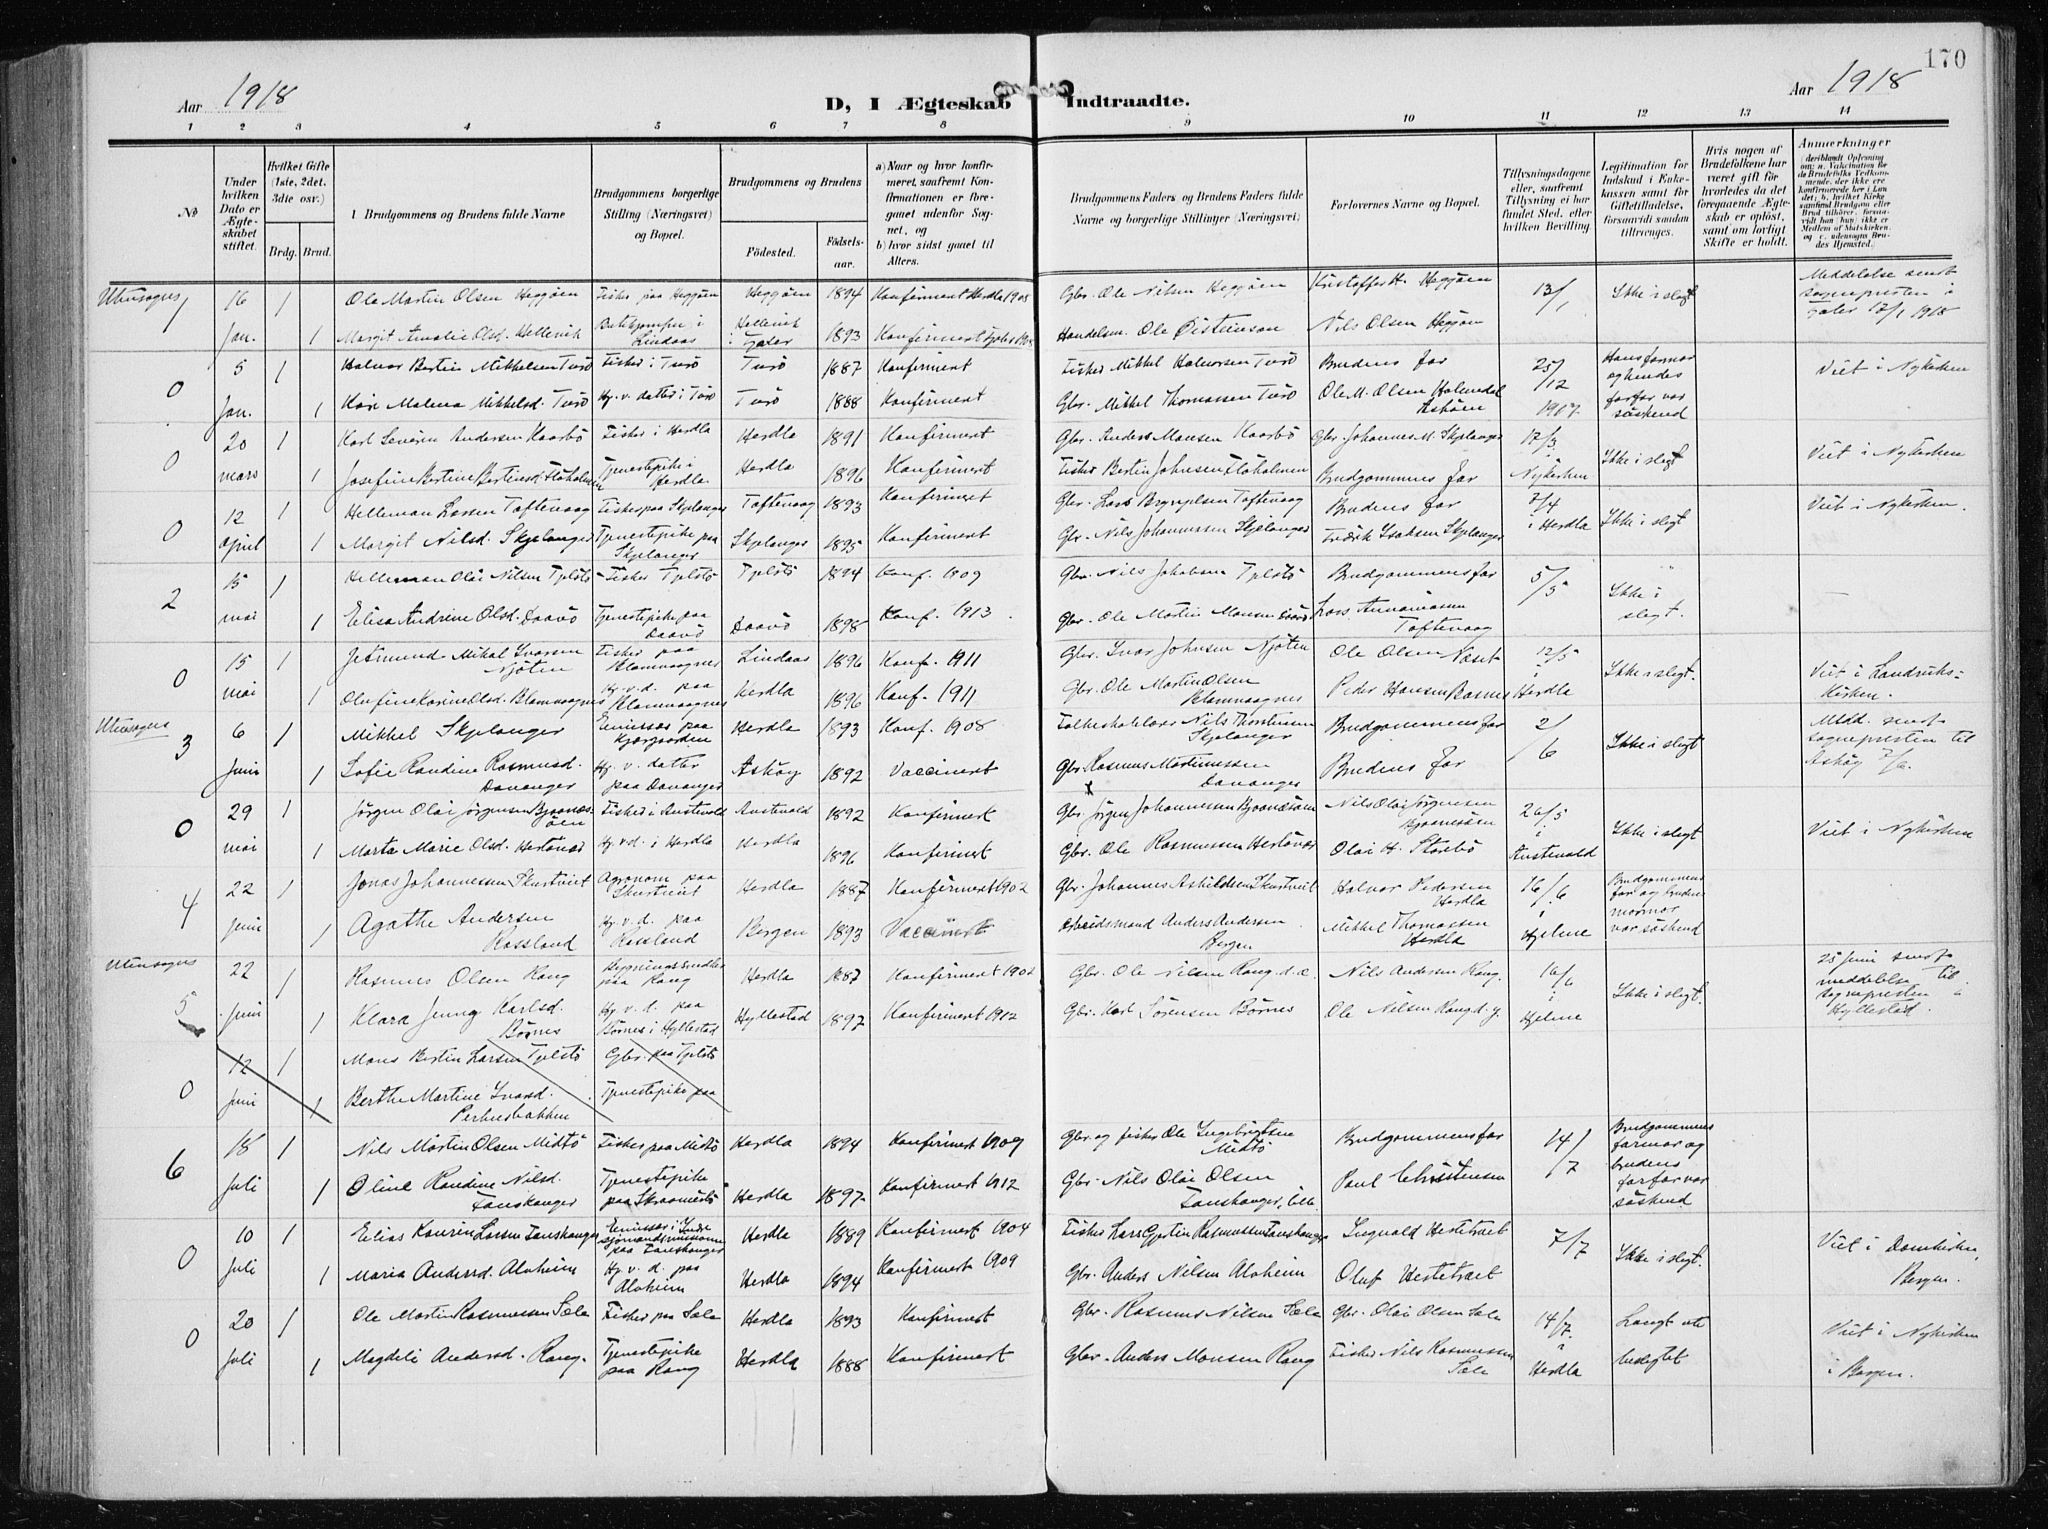 170
Aar 1918
D, I Ægteskab Indtraadte.
Aar 1918
1 2 3 4 5 6 7 8 9 10 11 12 13 14
No
Under hvilken Dato er Ægteskabet stiftet.
Hvilket Gifte (1ste, 2det, 3die osv.)
Brdg. Brud.
Brudgommens og Brudens fulde Navne
Brudgommens borgerlige Stilling (Næringsvei) og Bopæl.
Brudgommens og Brudens
Födested. Födselsaar.
a) Naar og hvor konfirmeret, saafremt Konfirmationen er foregaaet udenfor Sognet, og
b) hvor sidst gaaet til Alters.
Brudgommens Faders og Brudens Faders fulde Navne og borgerlige Stillinger (Næringsvei)
Forlovernes Navne og Bopæl.
Tillysningsdagene eller, saafremt Tillysning ei har fundet Sted, efter hvilken Bevilling
Legitimation for Indskud i Enkekassen samt for Giftetilladelse, forsaavidt saadan tiltrænges.
Hvis nogen af Brudefolkene har været gift för hvorledes da det foregaaende Ægteskab er oplöst, samt om lovligt Skifte er holdt.
Anmerkninger
Utensogns 1 16 1 Ole Martin Olsen Heggöen Fisker paa Heggöen Heggöen 1894 Konfirmert Herdla 1908 Gbr. Ole Nilsen Heggöen Kristoffer H. Heggöen 13/1 Ikke i slegt Meddelelse sendt sognepresten i 17/1 1918
Jan. 1 Margit Amalie Olsd. Hellevik i Lindaas Hellevik i 1893 Konfirmert Handelsm. Ole Öistensen Nils Olsen Hegöen
0 5 1 Halvor Bertin Mikkelsen Turö Fisker i Turö Turö 1887 Konfirmert Fisker Mikkel Halvorsen Turö Brudens far 25/12 1917. Hans farmor og hendes farfar var söskend Viet i Nykirken
Jan. 1 Kari Malena Mikkelsd. Turö Hj. v. datter i Turö Turö 1888 Konfirmert Gbr. Mikkel Thomassen Turö Ole M. Olsen Holmedal Asköen
0 20 1 Karl Severin Andersen Kaarbö Fisker i Herdla Herdla 1891 Konfirmert Gbr. Anders Monsen Kaarbö Gbr. Johannes M. Skjelanger 17/3 Nykirken Ikke i slegt Viet i Nykirken
mars 1 Josefine Bertine Bertinsd. Flöholmen Tjenestepike i Herdla Herdla 1896 Konfirmert Fisker Bertin Johnsen Flöholmen Brudgommens far
0 12 1 Helleman Larsen Toftevaag Fisker paa Skjelanger Toftevaag 1893 Konfirmert Gbr. Lars Brynjelsen Toftevaag Brudens far 7/4 i Herdla Ikke i slegt Viet i Nykirken.
april 1 Margit Nilsd. Skjelanger Tjenestepike paa Skjelanger Skjelanger 1895 Konfirmert Gbr. Nils Johannessen Skjelanger Fredrik Isaksen Skjelanger
2 15 1 Helleman Olai Nilsen Tjelstö Fisker Tjelstö Tjelstö 1894 Konf. 1909 Gbr. Nils Jakobsen Tjelstö Brudgommens far 5/5 Ikke i slegt.
mai 1 Elisa Andrine Olsd. Daavö Tjenestepike paa Daavö Daavö 1898 Konf. 1913. Gbr. Ole Martin Monsen Daavö Lars Toftevaag
0 15 1 Jetmund Mikal Ivarsen Njöten Fisker paa Blomvaagnes Lindaas 1896 Konf. 1911 Gbr. Ivar Johnsen Njöten Ole Olsen Næset 12/5 i Herdla Ikke i slegt. Viet i Landvikskirken.
mai 1 Olufine Karine Olsd. Blomvaagnes Hj. v. d. paa Blomvaagnes Herdla 1896 Konf. 1911 Gbr. Ole Martin Olsen Blomvaagnes Peder Hansen
Utensogns 3 6 1 Mikkel Skjelanger Emissær paa Herdla 1893 Konf. 1908 Folkeskolelærer Nils Thorsteinsen Skjelanger Brudgommens far 2/6 Ikke i slegt Medd. sendt sognepresten til Asköy 7/6.
juni 1 Sofie Randine Rasmusd. Davanger Hj. v. datter paa Davanger Asköy 1892 Vaccinert Gbr. Rasmus Martinussen Davanger Brudens far
0 29 1 Jörgen Olai Jörgensen Bjoanesöen Fisker i Austevold Austevold 1892 Konfirmert Gbr. Jörgen Johannessen Nils Olai Jörgensen 26/5 i Austevold Ikke i slegt Viet i Nykirken
mai 1 Marta Marie Olsd. Herlövær Hj. v. d. i Herdla Herdla 1896 Konfirmert Gbr. Ole Rasmussen Herlövær Olai H. Storebö
4 22 1 Jonas Johannessen Skurtveit Agronom paa Skurtveit Herdla 1887 Konfirmert 1902 Gbr. Johannes Askildsen Skurtveit Halvor Pedersen Herdla 16/6 i Hjelme Brudgommens far og brudens mormor var söskend
juni 1 Agathe Andersen Rossland Hj. v. d. paa Rossland Bergen 1893 Vaccinert Arbeidsmand Anders Andersen Bergen Mikkel Thomassen Herdla
Utensogns 5 22 1 Rasmus Olsen Rong Bygningssnedker paa Rong Herdla 1887 Konfirmert 1902 Gbr. Ole Nilsen Rong d. e. Nils Andersen Rong. 16/6 i Hjelme Ikke i slegt. 25 juni sendt meddelelse til sognepresten i Hyllestad.
juni 1 Klara Jenny Karlsd. Börnes Hj. v. d. paa Börnes i Hyllestad Hyllestad 1897 Konfirmert 1912 Gbr. Karl Sörensen Börnes Ole Nilsen Rong d. y.
0 12 1 Mons Bertin Larsen Tjelstö Gbr. paa Tjelstö
juni 1 Berthe Martine Ivarsd. Tjenestepike paa
6 18 1 Nils Martin Olsen Midtö Fisker paa Midtö Herdla 1894 Konfirmert 1909 Gbr. og fisker Ole Ingebrigtsen Midtö Brudgommens far 14/7 Brudgommens farmor og brudens farfar var söskend
juli 1 Oline Randine Nilsd. Fanskanger Tjenestepike paa Herdla 1897 Konfirmert 1912 Gbr. Nils Olai Olsen Fanskanger, Paul Christensen
0 10 1 Elias Konrin Larsen Fanskanger Emissær i Indre sjömandsmission paa Fanskanger Herdla 1889 Konfirmert 1904 Fisker Lars Gjertin Rasmussen Fanskanger Sigvald Hestetræet 7/7 Ikke i slegt. Viet i Domkirken Bergen.
juli 1 Maria Andersd. Alvheim Hj. v. d. paa Alvheim Herdla 1894 Konfirmert 1909 Gbr. Anders Nilsen Alvheim Oluf Hestetræet
0 20 1 Ole Martin Rasmussen Sæle Fisker paa Sæle Herdla 1893 Konfirmert Gbr. Rasmus Nilsen Sæle Gbr. Olai Olsen Sæle 14/7 i Herdla Langt ute beslegtet Viet i Nykirken i Bergen.
juli 1 Magdeli Andersd. Rong. Tjenestepike paa Rong Herdla 1888 Konfirmert Gbr. Anders Monsen Rong Fisker Nils Rasmussen Sæle